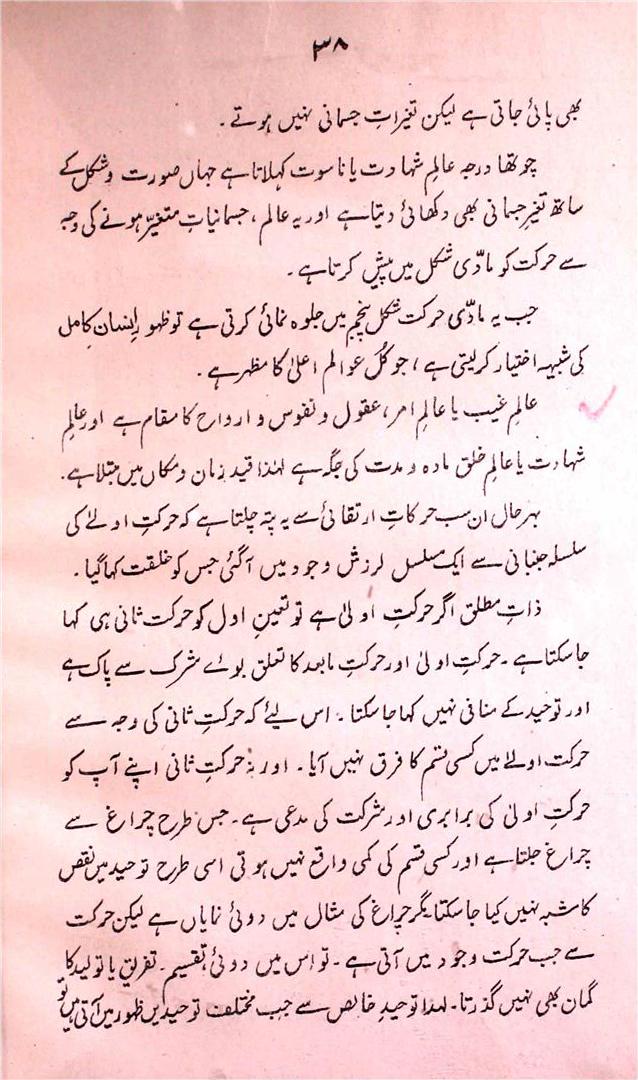 ۳۸
بھی پائی جاتی ہے لیکن تغیراتِ جسمانی نہیں ہوتے۔
چوتھا درجہ عالمِ شہادت یا ناسوت کہلاتا ہے جہاں صورت و شکل کے
ساتھ تغیرِ جسمانی بھی دکھائی دیتا ہے اور یہ عالم، جسمانیات متغیّر ہونے کی وجہ
سے حرکت کو مادّی شکل میں پیش کرتا ہے۔
جب یہ مادّی حرکت شکل پنجم میں جلوہ نمائی کرتی ہے تو ظہورِ انسان کامل
کی شبیہہ اختیار کر لیتی ہے، جو کُل عوالم اعلیٰ کا مظہر ہے۔
عالمِ غیب یا عالمِ امر، عقول و نفوس و ارواح کا مقام ہے اور عالمِ
شہادت یا عالمِ خلق مادہ و مدت کی جگہ ہے لہٰذا قید زمان و مکاں میں مبتلا ہے۔
بہرحال ان سب حرکات ارتقائی سے یہ پتہ چلتا ہے کہ حرکتِ اولےٰ کی
سلسلہ جنبانی سے ایک مسلسل لرزش وجود میں آ گئی جس کو خلقت کہا گیا۔
ذاتِ مطلق اگر حرکتِ اولیٰ ہے تو تعینِ اول کو حرکت ثانی ہی کہا
جا سکتا ہے۔ حرکتِ اولیٰ اور حرکتِ مابعد کا تعلق بوئے شرک سے پاک ہے
اور توحید کے منافی نہیں کہا جا سکتا۔ اس لیئے کہ حرکتِ ثانی کی وجہ سے
حرکت اولےٰ میں کسی قسم کا فرق نہیں آیا۔ اور نہ حرکتِ ثانی اپنے آپ کو
حرکتِ اولیٰ کی برابری اور شرکت کی مدعی ہے۔ جس طرح چراغ سے
چراغ جلتا ہے اور کسی قسم کی کمی واقع نہیں ہوتی اسی طرح توحید میں نقص
کا شبہ نہیں کیا جا سکتا مگر چراغ کی مثال میں دوئی نمایاں ہے لیکن حرکت
سے جب حرکت وجود میں آتی ہے۔ تو اس میں دوئی، تقسیم۔ تفریق یا تولید کا
گمان بھی نہیں گذرتا۔ لہذا توحیدِ خالص سے جب مختلف توحیدیں ظہور میں آتی ہیں تو